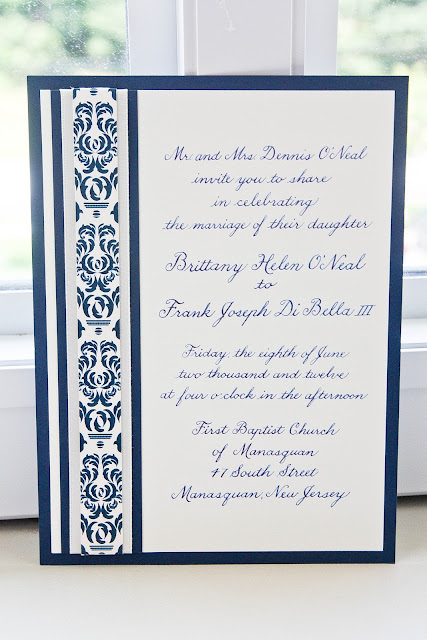 Mr. and Mrs. Dennis O'Neal
invite you to share
in celebrating
the marriage of their daughter
Brittany Helen O'Neal
to
Frank Joseph Di Bella III
Friday, the eighth of June
two thousand and twelve
at four o'clock in the afternoon
First Baptist Church
of Manasquan
47 South Street
Manasquan, New Jersey